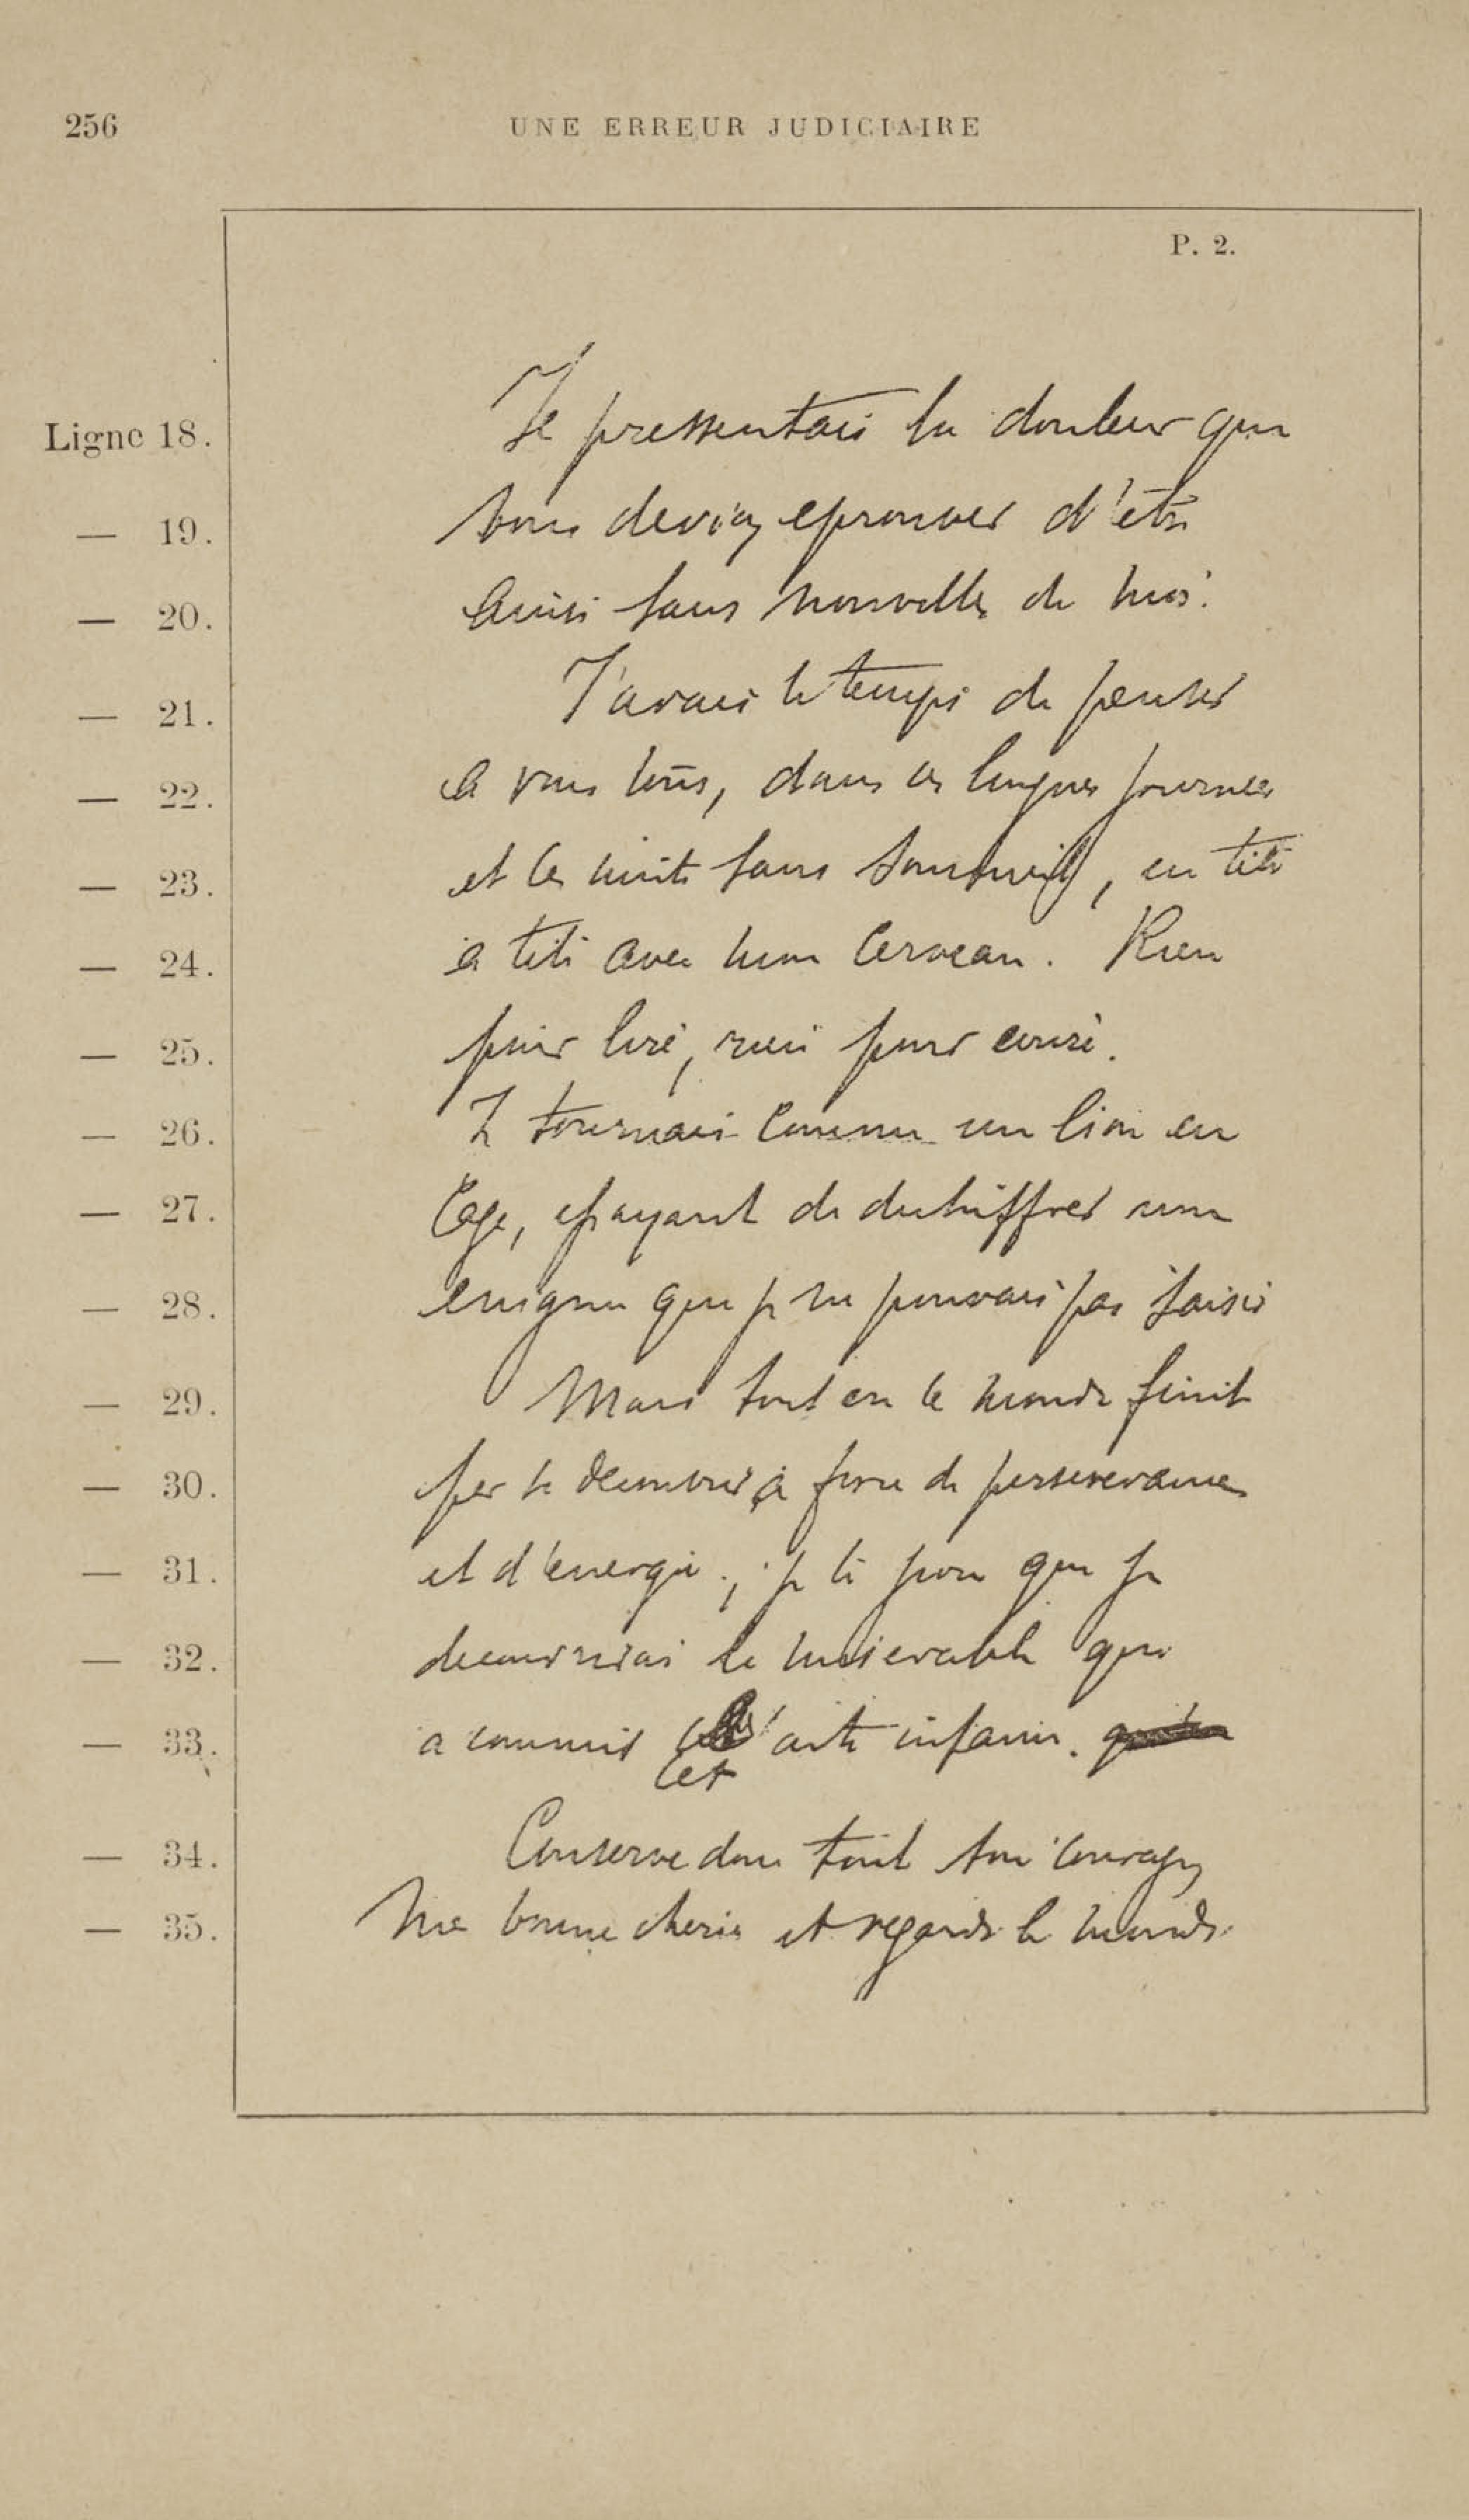 256
UNE ERREUR JUDICIAIRE
P. 2.
Ligne 18. Je pressentais la douleur que
— 19. vous deviez eprouver d'etre
— 20. ainsi sans nouvelles de moi.
— 21. J'avais le temps de penser
— 22. à vous tous, dans ces longues journees
— 23. et ces nuits sans sommeil, en tete
— 24. à tete avec mon cerveau. Rien
— 25. pour lire, rien pour ecrire.
— 26. Je tournais comme un lion en
— 27. cage, essayant de dechiffrer une
— 28. enigme que je ne pouvais pas saisir
— 29. Mais tout en ce monde finit
— 30. par se decouvrir à force de perseverance
— 31. et d'energie, je te jure que je
— 32. decouvrirai le miserable qui
— 33. a commis cet acte infame.
— 34. Conserve donc tout ton courage,
— 35. ma bonne cherie et regarde le monde